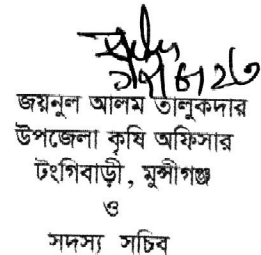 জয়নুল আলম তালুকদার
উপজেলা কৃষি অফিসার
টংগিবাড়ী, মুন্সীগঞ্জ
ও
সদস্য সচিব